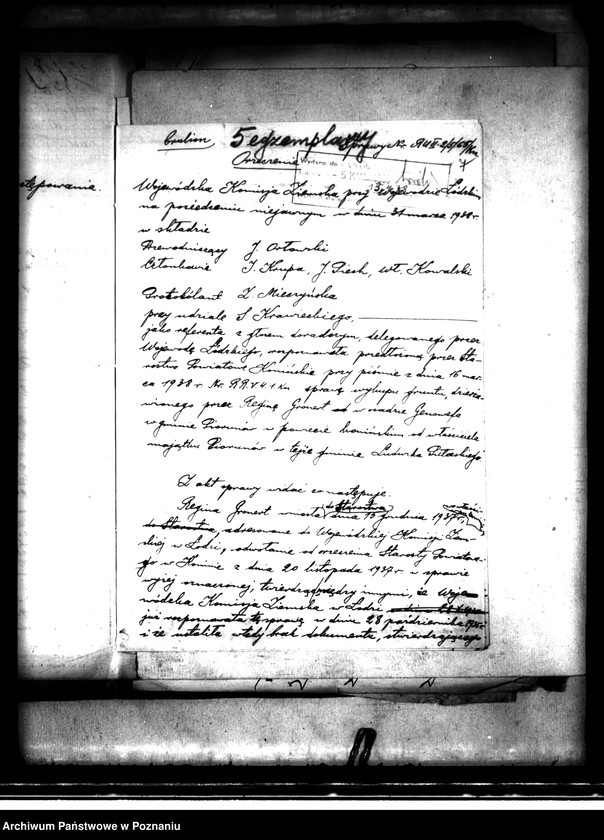 brulion 5 egzemplarzy
Sprawy Nr. RUII-
Orzeczenie
stępowania.
Wojewódzka Komisja Ziemska przy Wojewodzie Łódzkim
na posiedzeniu niejawnym w dniu 31 marca 1938 r.
w składzie
Przewodniczący J. Ostowski
Członkowie J. Krupa, J. Piech, Wł. Kowalski
Protokólant Z. Mieszyńska
przy udziale S. Krawieckiego,
jako referenta z głosem doradczym, delegowanego przez
Wojewodę Łódzkiego, rozpoznała przedłożoną przez Sta-
rostwo Powiatowe Konińskie przy piśmie z dnia 16 mar-
ca 1938 r. Nr. RR. sprawę wykupu gruntu, dzierża-
wionego przez Reginę Gronert we wsi Genowefa
w gminie Piorunów w powiecie konińskim od właściciela
majątku Piorunów w tejże gminie Ludwika Pułaskiego.
Z akt sprawy widać co następuje.
Regina Gronert wniosła do Starostwa dnia 15 grudnia 1937 r.,
do Starostwa, adresowane do Wojewódzkiej Komisji Ziem-
skiej w Łodzi, odwołanie od orzeczenia Starosty Powiatowe-
go w Koninie z dnia 20 listopada 1937 r. w sprawie
wyżej oznaczonej, twierdząc między innymi, że Woje-
wódzka Komisja Ziemska w Łodzi
już rozpoznała tę sprawę w dniu 28 października 1935 r.
i że ustaliła wtedy brak dokumentu, stwierdzającego
Archiwum Państwowe w Poznaniu